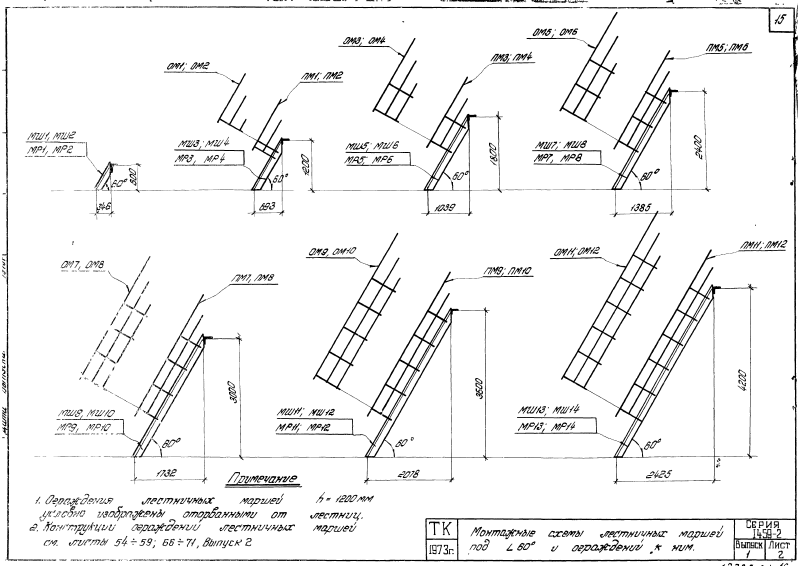 15
ОМ1; ОМ2
ПМ1; ПМ2
МШ1, МШ2
МР1; МР2
60°
600
346
МШ3; МШ4
МР3; МР4
60°
1200
693
ОМ3; ОМ4
ПМ3; ПМ4
МШ5; МШ6
МР5; МР6
60°
1800
1039
ОМ5; ОМ6
ПМ5; ПМ6
МШ7; МШ8
МР7; МР8
60°
2400
1385
ОМ7, ОМ8
ПМ7, ПМ8
МШ9, МШ10
МР9; МР10
60°
3000
1732
ОМ9, ОМ10
ПМ9; ПМ10
МШ11; МШ12
МР11; МР12
60°
3600
2078
ОМ11; ОМ12
ПМ11; ПМ12
МШ13; МШ14
МР13; МР14
60°
4200
2425
Примечание
1. Ограждения лестничных маршей h = 1200 мм
условно изображены оторванными от лестниц.
2. Конструкции ограждений лестничных маршей
см. листы 54÷59; 66÷71, Выпуск 2
ТК
1973г.
Монтажные схемы лестничных маршей
под ∠60° и ограждений к ним.
Серия
1.459-2
Выпуск
1
Лист
2